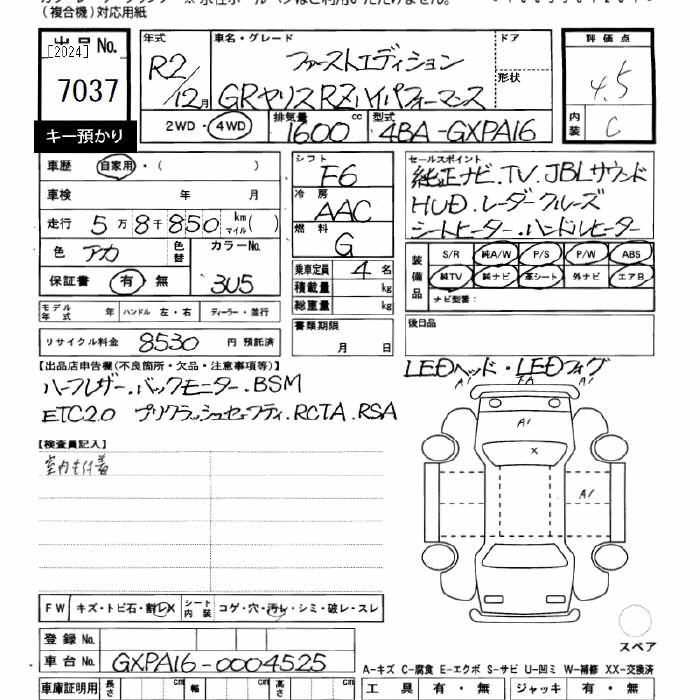 (複合機)対応用紙
出品No.
[2024]
7037
キー預かり
年式
R2/12月
車名・グレード
ファーストエディション
GRヤリス RZハイパフォーマンス
ドア
形状
評価点
4.5
内装
C
2WD・4WD
排気量
1600 cc
型式
4BA-GXPA16
車歴 自家用・( )
車検 年 月
走行 5万8千850 km マイル ( )
色 アカ 色替 カラーNo.
3U5
保証書 有・無
シフト
F6
冷房
AAC
燃料
G
乗車定員 4 名
積載量 kg
総重量 kg
セールスポイント
純正ナビ.TV.JBLサウンド
HUD.レーダークルーズ
シートヒーター.ハンドルヒーター
装備品 S/R 純A/W P/S P/W ABS
純TV 純ナビ 革シート 外ナビ エアB
ナビ型番:
モデル年式 年 ハンドル 左・右 ディーラー・並行
リサイクル料金 8530 円 預託済
書類期限
月 日
後日品
【出品店申告欄(不良箇所・欠品・注意事項等)】
LEDヘッド・LEDフォグ
ハーフレザー.バックモニター.BSM
ETC2.0 プリクラッシュセーフティ.RCTA.RSA
A1
A1
A1
X
A1
【検査員記入】
FW キズ・トビ石・割レX シート内装 コゲ・穴・汚レ・シミ・破レ・スレ
スペア
登録No.
車台No. GXPA16-0004525
A-キズ C-腐食 E-エクボ S-サビ U-凹ミ W-補修 XX-交換済
車庫証明用 長さ cm 幅 cm 高さ cm
工具 有・無 ジャッキ 有・無